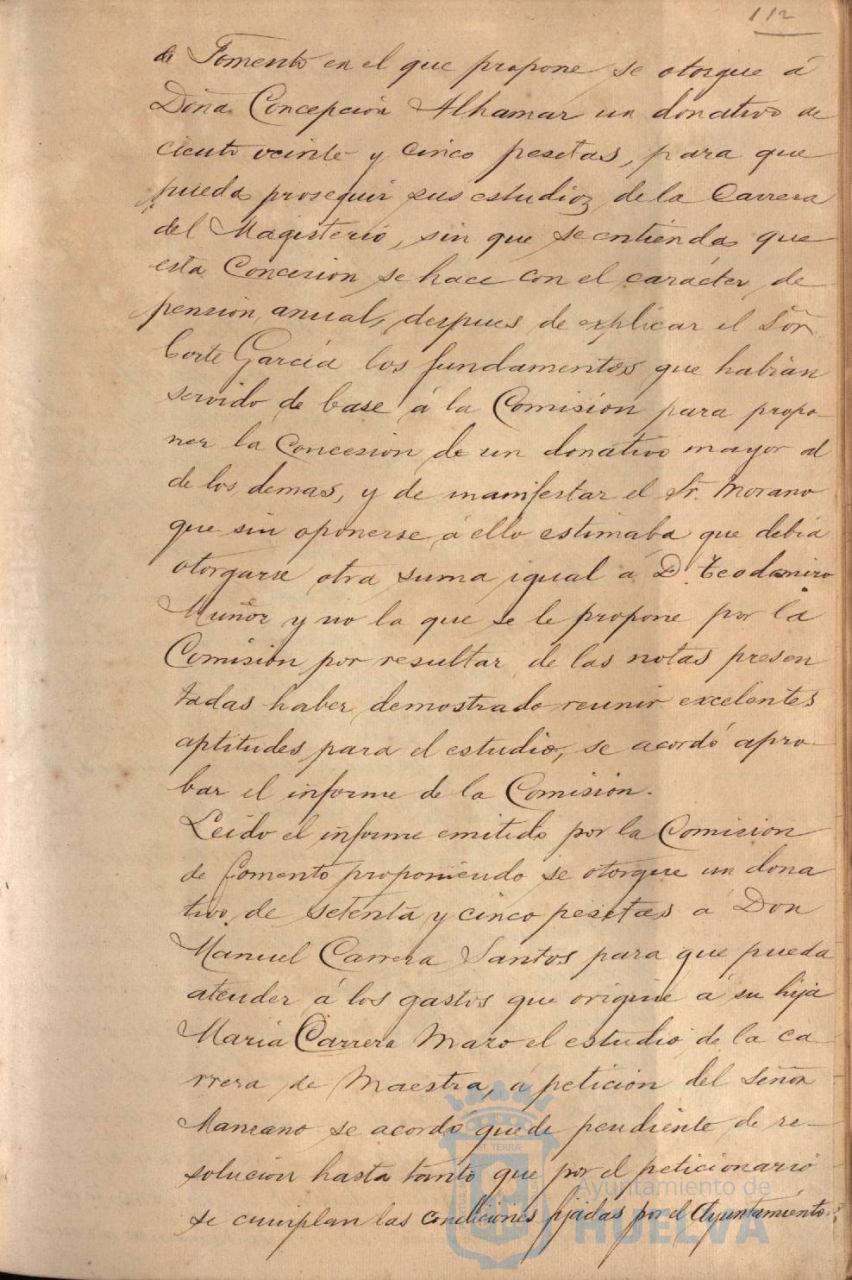 112
de Fomento en el que propone se otorgue á
Doña Concepción Alhamar un donativo de
ciento veinte y cinco pesetas, para que
pueda proseguir sus estudios de la Carrera
del Magisterio, sin que se entienda que
esta Concesion se hace con el carácter de
pensión anual, despues de explicar el Sõr
Corte García los fundamentos que habian
servido de base á la Comisión para propo-
ner la Concesion de un donativo mayor al
de los demas, y de manifestar el Sr. Morano
que sin oponerse á ello estimaba que debia
otorgarse otra suma igual á D. Teodomiro
Muñoz y no la que se le propone por la
Comisión por resultar de las notas presen
tadas haber demostrado reunir excelentes
aptitudes para el estudio, se acordó apro-
bar el informe de la Comisión.
Leido el informe emitido por la Comision
de fomento proponiendo se otorgue un dona
tivo de setenta y cinco pesetas á Don
Manuel Carrera Santos para que pueda
atender á los gastos que origine á su hija
Maria Carrera Maro el estudio de la ca-
rrera de Maestra, á petición del Señor
Manzano se acordó quede pendiente de re-
solución hasta tanto que por el peticionario
se cumplan las condiciones fijadas por el Ayuntamiento.
Ayuntamiento de
HUELVA